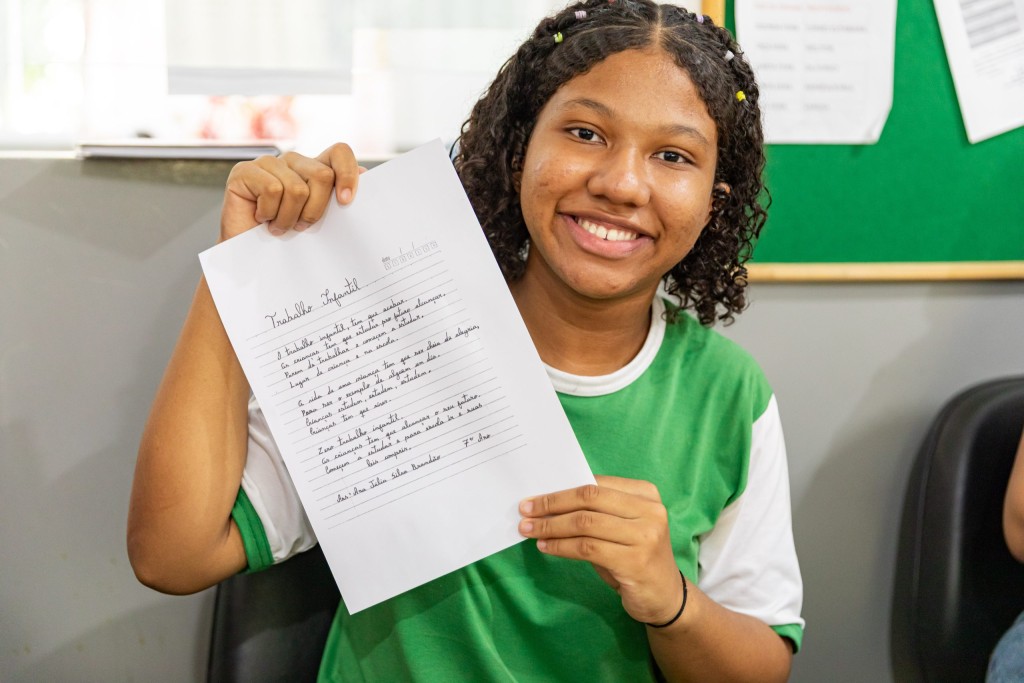 Trabalho Infantil
O trabalho infantil, tem que acabar.
As crianças tem que estudar pro futuro alcançar.
Parem de trabalhar e começem a estudar.
Lugar de criança é na escola.
A vida de uma criança tem que ser cheia de alegria,
Para ser o exemplo de alguém um dia.
Crianças estudem, estudem, estudem.
Crianças tem que viver.
Zero trabalho infantil,
As crianças tem que alcançar o seu futuro.
Começar a estudar e para escola ir e suas
leis cumprir.
Ass: Ana Júlia Silva Brandão 7º Ano